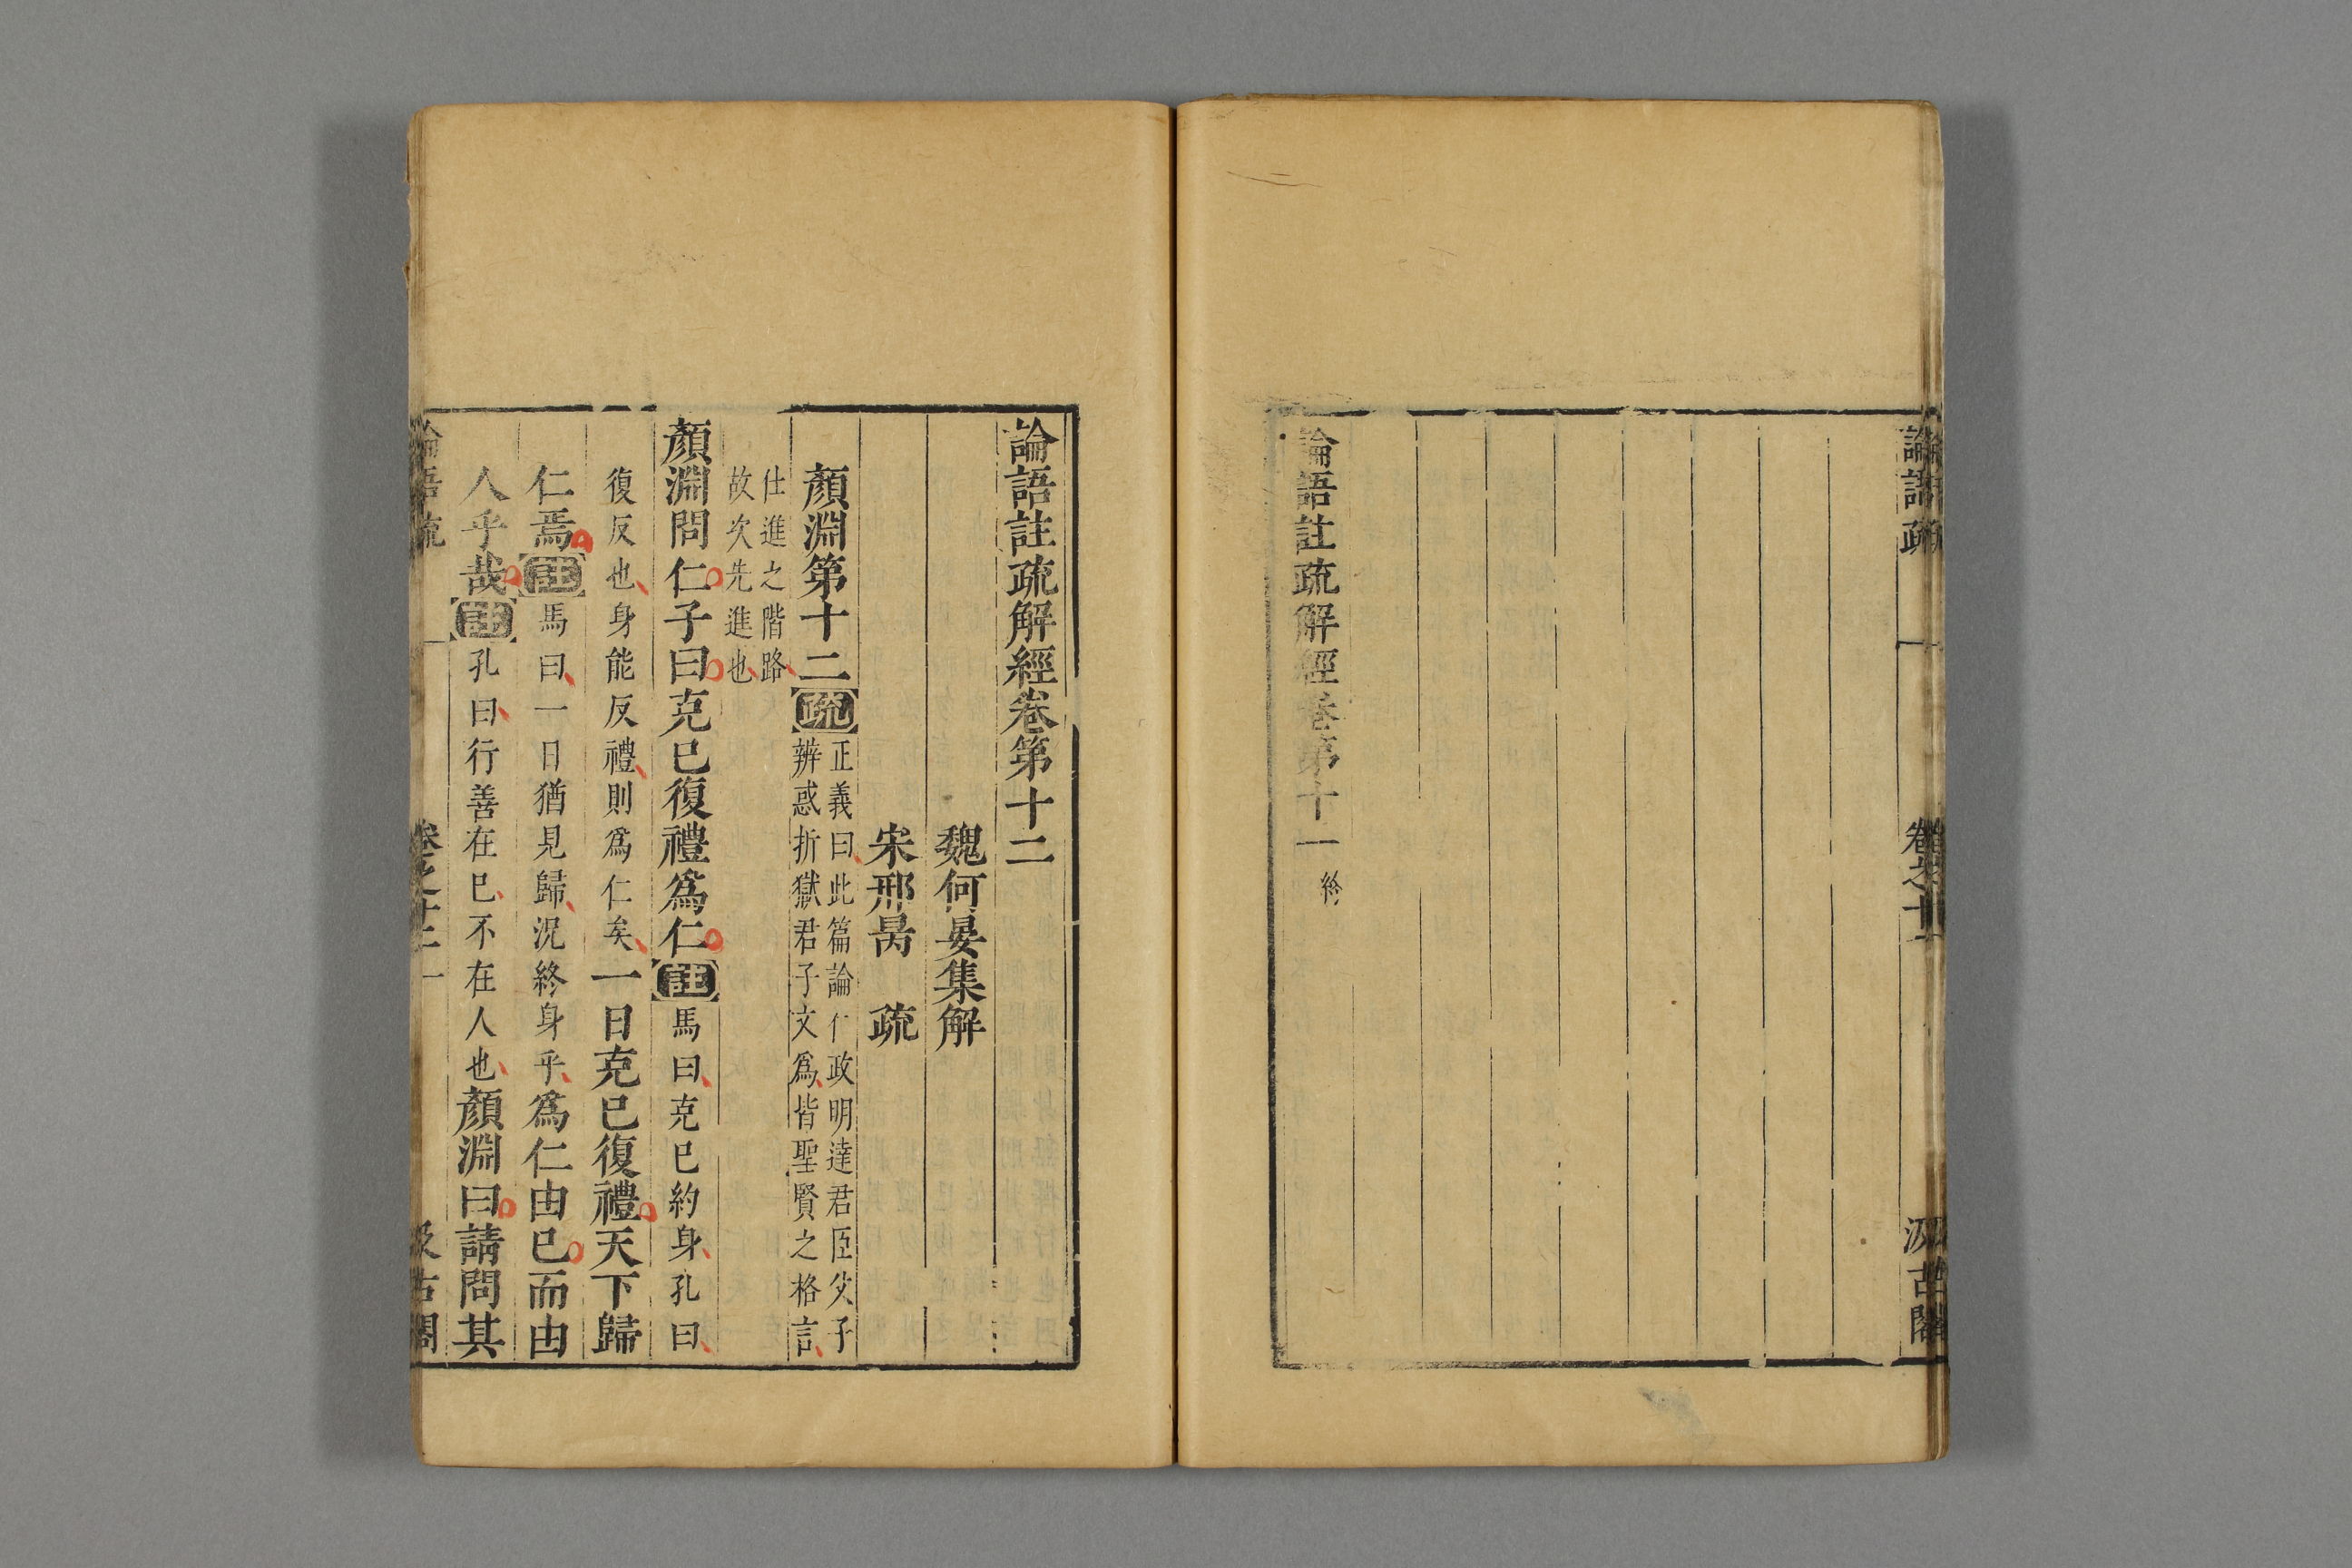 論語疏
卷之十一
汲古閣
論語註疏解經卷第十一 終
論語註疏解經卷第十二
魏何晏集解
宋邢昺 疏
顏淵第十二 疏 正義曰此篇論仁政明達君臣父子
辨惑折獄君子文爲皆聖賢之格言
仕進之階路
故次先進也
顏淵問仁子曰克己復禮爲仁 註 馬曰克己約身孔曰
復反也身能反禮則爲仁矣一日克己復禮天下歸
仁焉 註 馬曰一日猶見歸況終身乎爲仁由己而由
人乎哉 註 孔曰行善在己不在人也顏淵曰請問其
論語疏
卷之十二
一
汲古閣